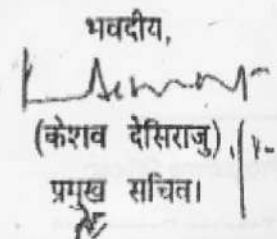 भवदीय,
(केशव देसिराजु)
प्रमुख सचिव।